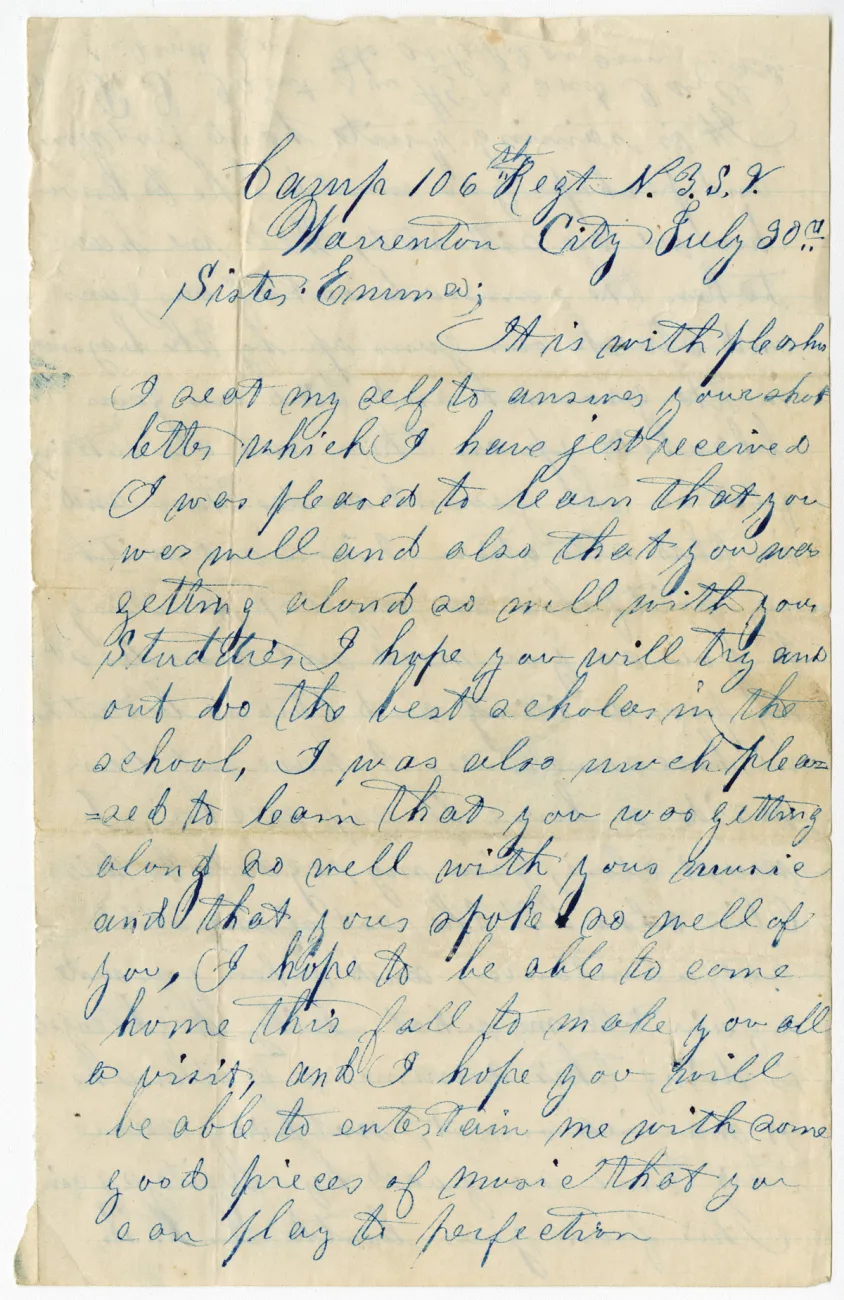 Camp 106th Regt N.Y.S.V.
Warrenton City July 30th
Sister Emma;
It is with pleashu
I seat my self to answer your shot
letter which I have jest received
I was pleased to learn that you
was well and also that you was
getting alond so well with your
Studdies I hope you will try and
out do the best scholar in the
school, I was also much plea=
=sed to learn that you was getting
along so well with your music
and that yours spoke so well of
you, I hope to be able to come
home this fall to make you all
a visit, and I hope you will
be able to entertain me with some
good pieces of music that you
can play to perfection